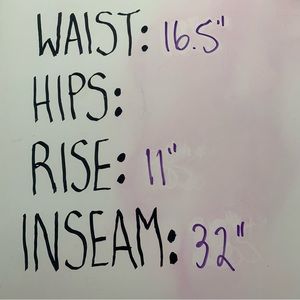 WAIST: 16.5"
HIPS:
RISE: 11"
INSEAM: 32"